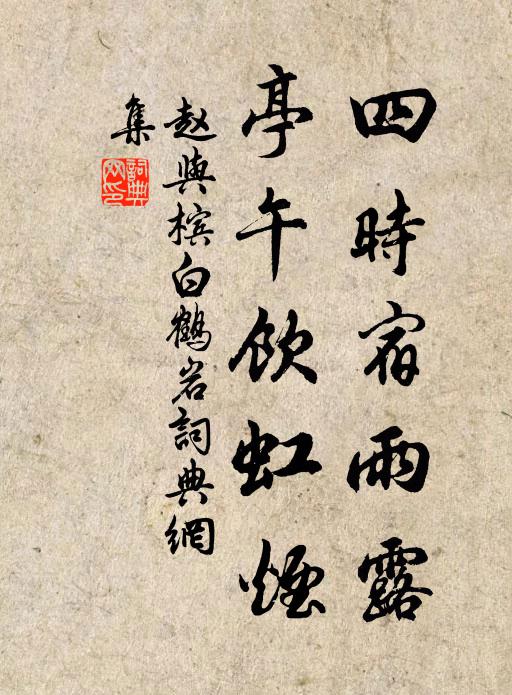 四時宿雨露
亭午飲虹煙
赵與檳白鶴岩詞典網
集
詞典
网印